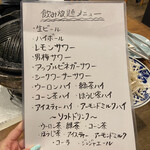 飲み放題メニュー
・生ビール
・ハイボール
・レモンサワー
・男梅サワー
・アップルビネガーサワー
・シークワーサーサワー
・ウーロンハイ ・緑茶ハイ
・コーン茶ハイ ・ほうじ茶ハイ
・アイスティーハイ ・アーモンドミルクハイ
～ソフトドリンク～
・ウーロン茶 ・緑茶 ・コーン茶
・ほうじ茶 ・アイスティー ・アーモンドミルク
・コーラ ・ジンジャエール